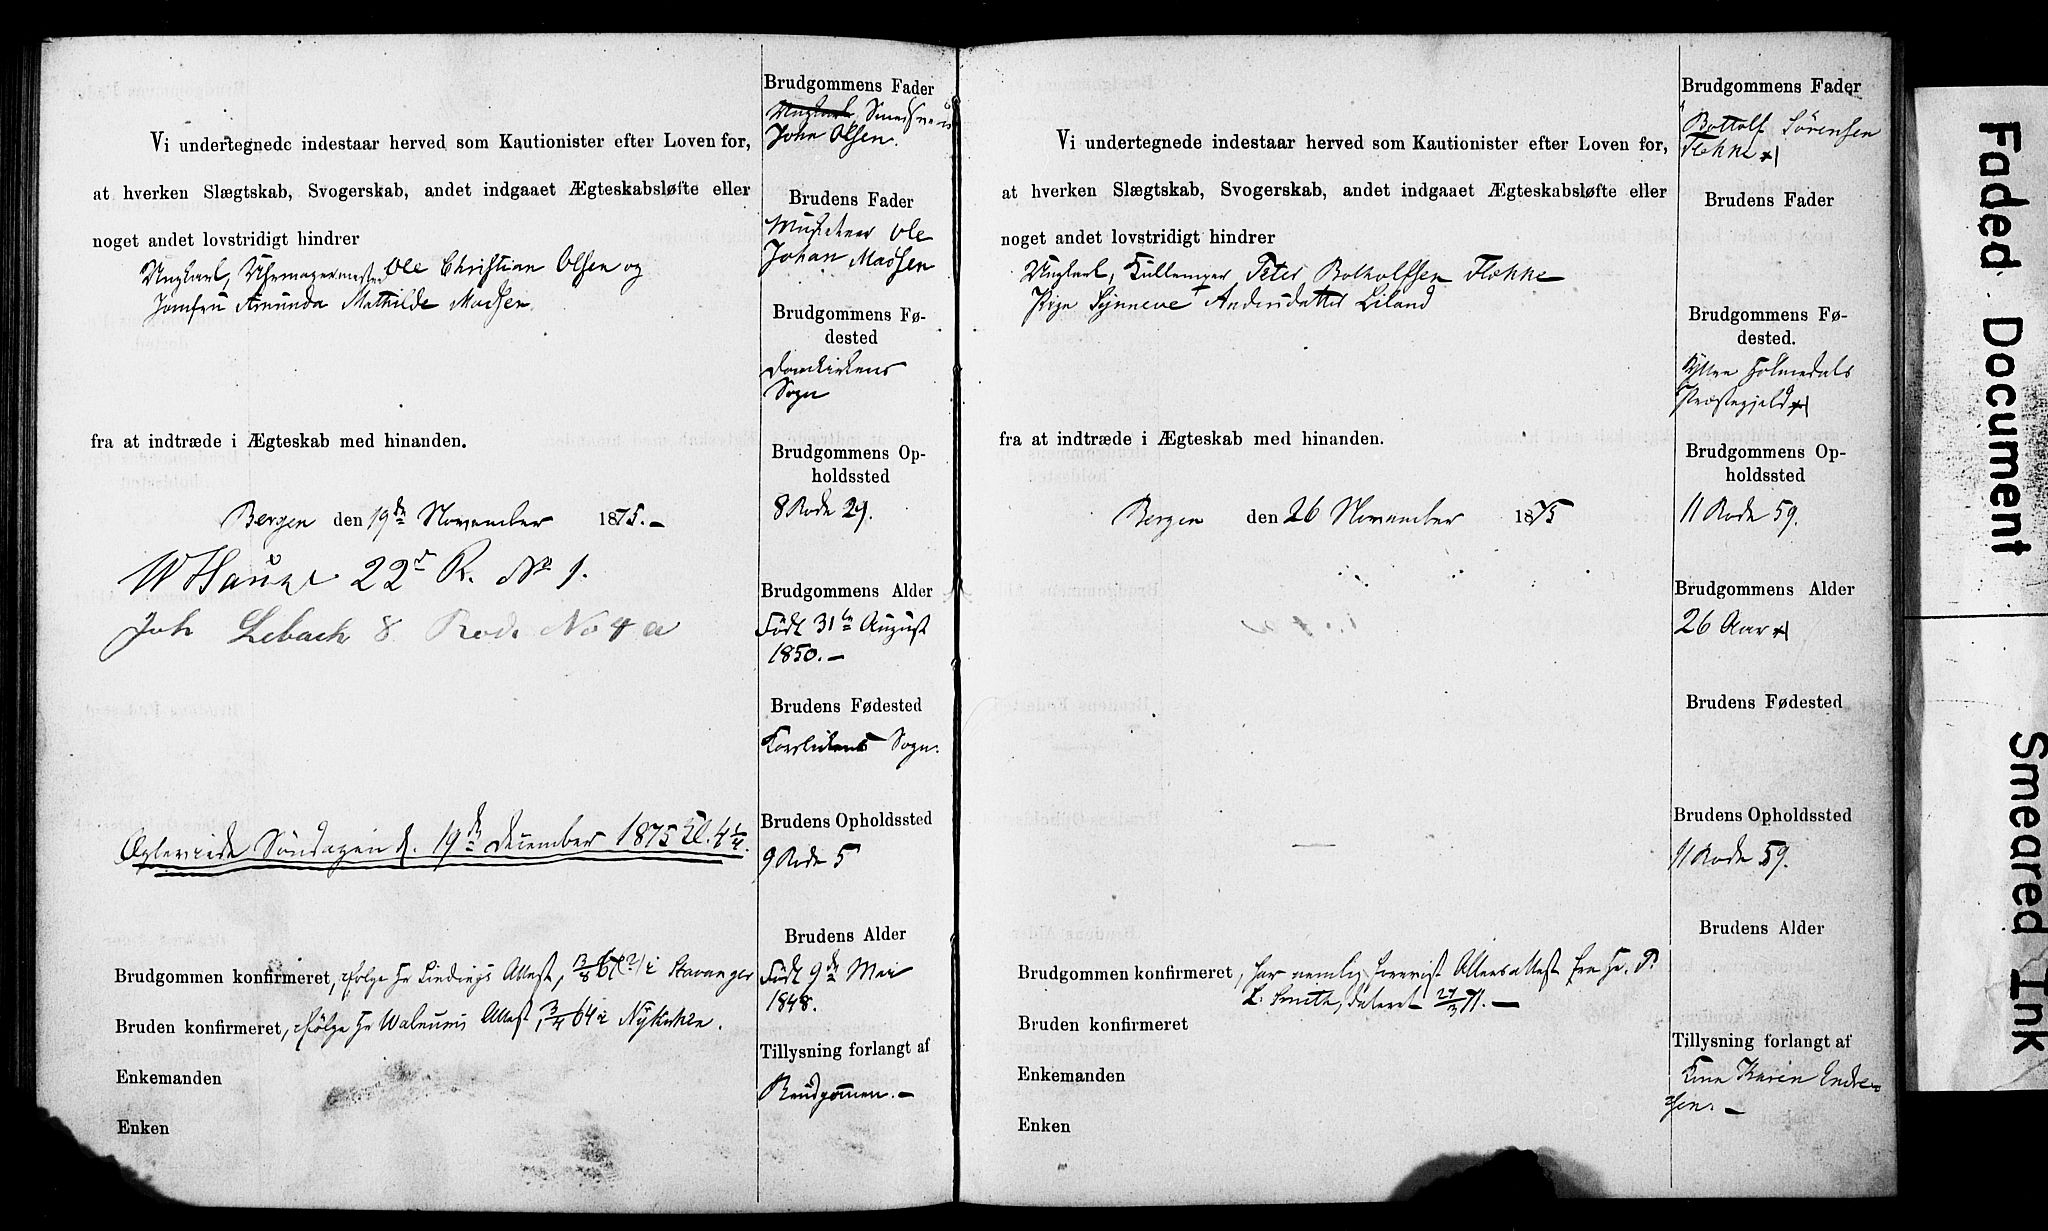 Vi undertegnede indestaar herved som Kautionister efter Loven for,
at hverken Slægtskab, Svogerskab, andet indgaaet Ægteskabsløfte eller
noget andet lovstridigt hindrer
Ungkarl, Uhrmagermester Ole Christian Olsen og
Jomfru Amunda Mathilde Madsen
fra at indtræde i Ægteskab med hinanden.
Bergen den 19de November 1875.-
W Hauge 22de R. No 1.
Joh Lebach 8 Rode No 4 a
Ægtevride Søndagen d. 19de December 1875 Kl. 4 1/2.
Brudgommen konfirmeret, ifølge Hr Lindings Attest, 13/8 67(?) i Stavanger
Bruden konfirmeret, ifølge Hr Walnums Attest, 3/4 64 i Nykirken.
Enkemanden
Enken
Brudgommens Fader
Ungkarl, Smedsvend
John Olsen.
Brudens Fader
Musikeer Ole
Johan Madsen
Brudgommens Fø-
dested
Domkirkens
Sogn
Brudgommens Op-
holdssted
8 Rode 29.
Brudgommens Alder
Født 31te August
1850.-
Brudens Fødested
Korskirkens Sogn.
Brudens Opholdssted
9 Rode 5
Brudens Alder
Født 9de Mai
1848.
Tillysning forlangt af
Brudgommen.-
Vi undertegnede indestaar herved som Kautionister efter Loven for,
at hverken Slægtskab, Svogerskab, andet indgaaet Ægteskabsløfte eller
noget andet lovstridigt hindrer
Ungkarl, Kullemper Peter Botholfsen Flekke
Pige Synneve Andersdatter Liland
fra at indtræde i Ægteskab med hinanden.
Bergen den 26 November 1875
Brudgommen konfirmeret, har nemlig forevist Altersattest fra Hr. P.
L. Smith, dateret 27/3 71.-
Bruden konfirmeret
Enkemanden
Enken
Brudgommens Fader
Bottolf Sørensen
Flekke
Brudens Fader
Brudgommens Fø-
dested.
Yttre Holmedals
Præstegjeld
Brudgommens Op-
holdssted
11 Rode 59.
Brudgommens Alder
26 Aar
Brudens Fødested
Brudens Opholdssted
11 Rode 59.
Brudens Alder
Tillysning forlangt af
Karen Endre-
sen.-
Faded Document
Smeared Ink